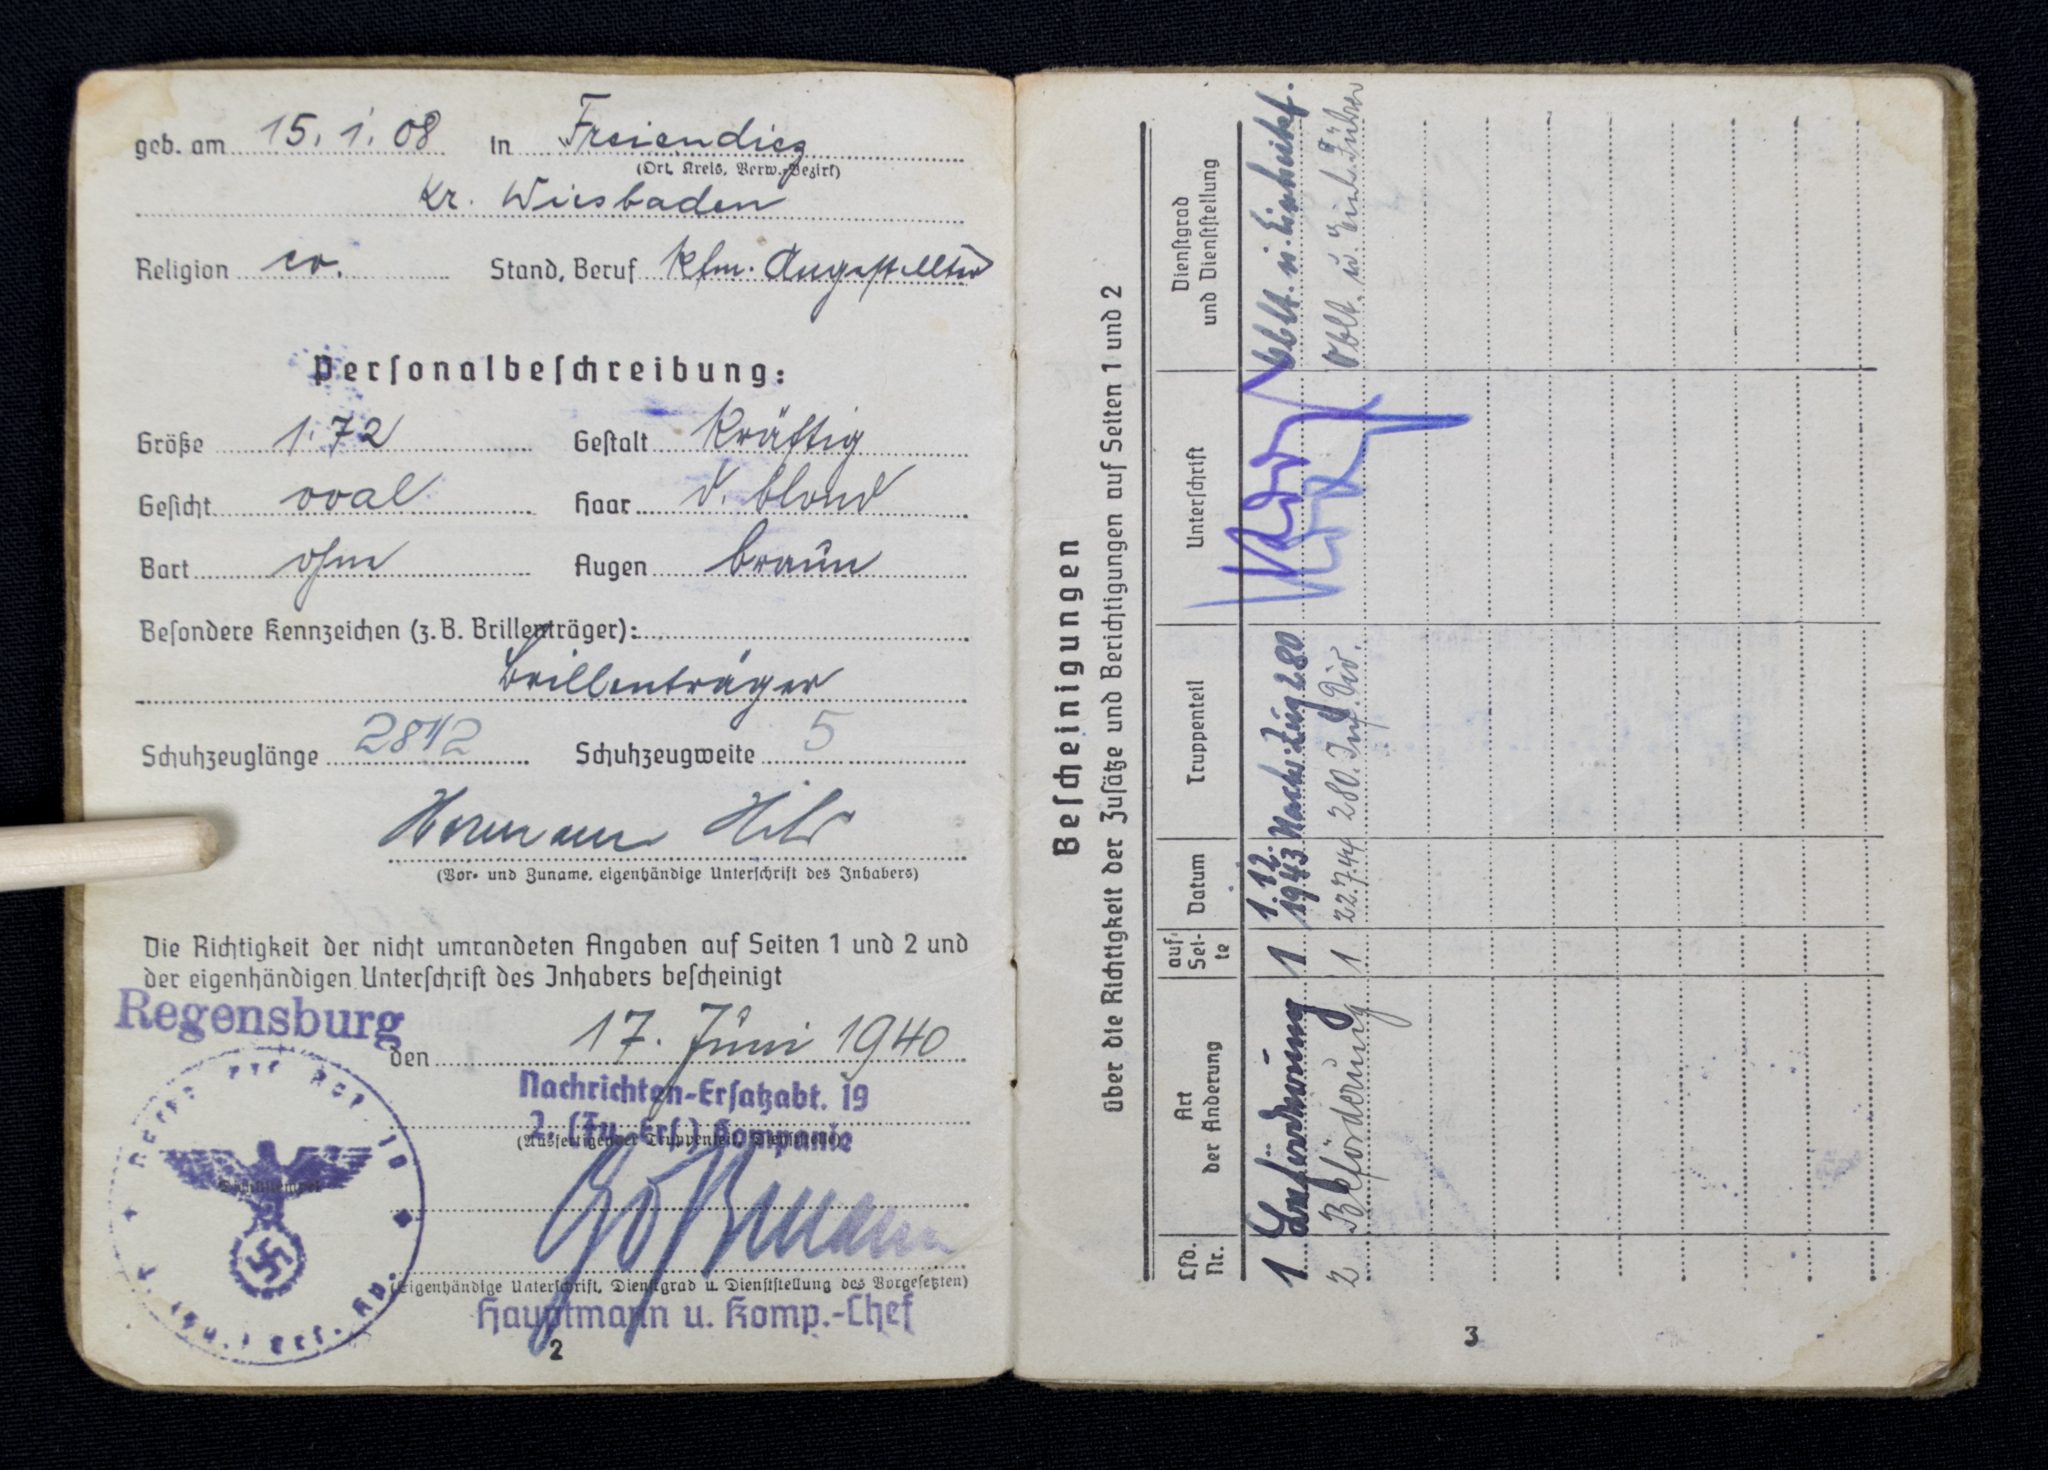 geb. am 15. 1. 08 in Freiendiez
(Ort, Kreis, Verw.-Bezirk)
Kr. Wiesbaden
Religion ev. Stand, Beruf kfm. Angestellter
Personalbeschreibung:
Größe 1.72 Gestalt kräftig
Gesicht oval Haar d. blond
Bart ohne Augen braun
Besondere Kennzeichen (z. B. Brillenträger):
Brillenträger
Schuhzeuglänge 28 1/2 Schuhzeugweite 5
Hermann
(Vor- und Zuname, eigenhändige Unterschrift des Inhabers)
Die Richtigkeit der nicht umrandeten Angaben auf Seiten 1 und 2 und
der eigenhändigen Unterschrift des Inhabers bescheinigt
Regensburg
den 17. Juni 1940
Nachrichten-Ersatzabt. 19
2. (Fu.-Ers.) Kompanie
(Ausfertigender Truppenteil, Dienststelle)
Dienststempel
Goßmann
(Eigenhändige Unterschrift, Dienstgrad u. Dienststellung des Vorgesetzten)
Hauptmann u. Komp.-Chef
2
Bescheinigungen
über die Richtigkeit der Zusätze und Berichtigungen auf Seiten 1 und 2
Lfd. Nr. Art der Änderung auf Sei- te Datum Truppenteil Unterschrift Dienstgrad und Dienststellung
1 Beförderung 1 1.12. 1943 Nachr. Zug 280 Oblt. u.
2 Beförderung 1 22.7.44 280. Inf. Div. Oblt. u. Führer
3